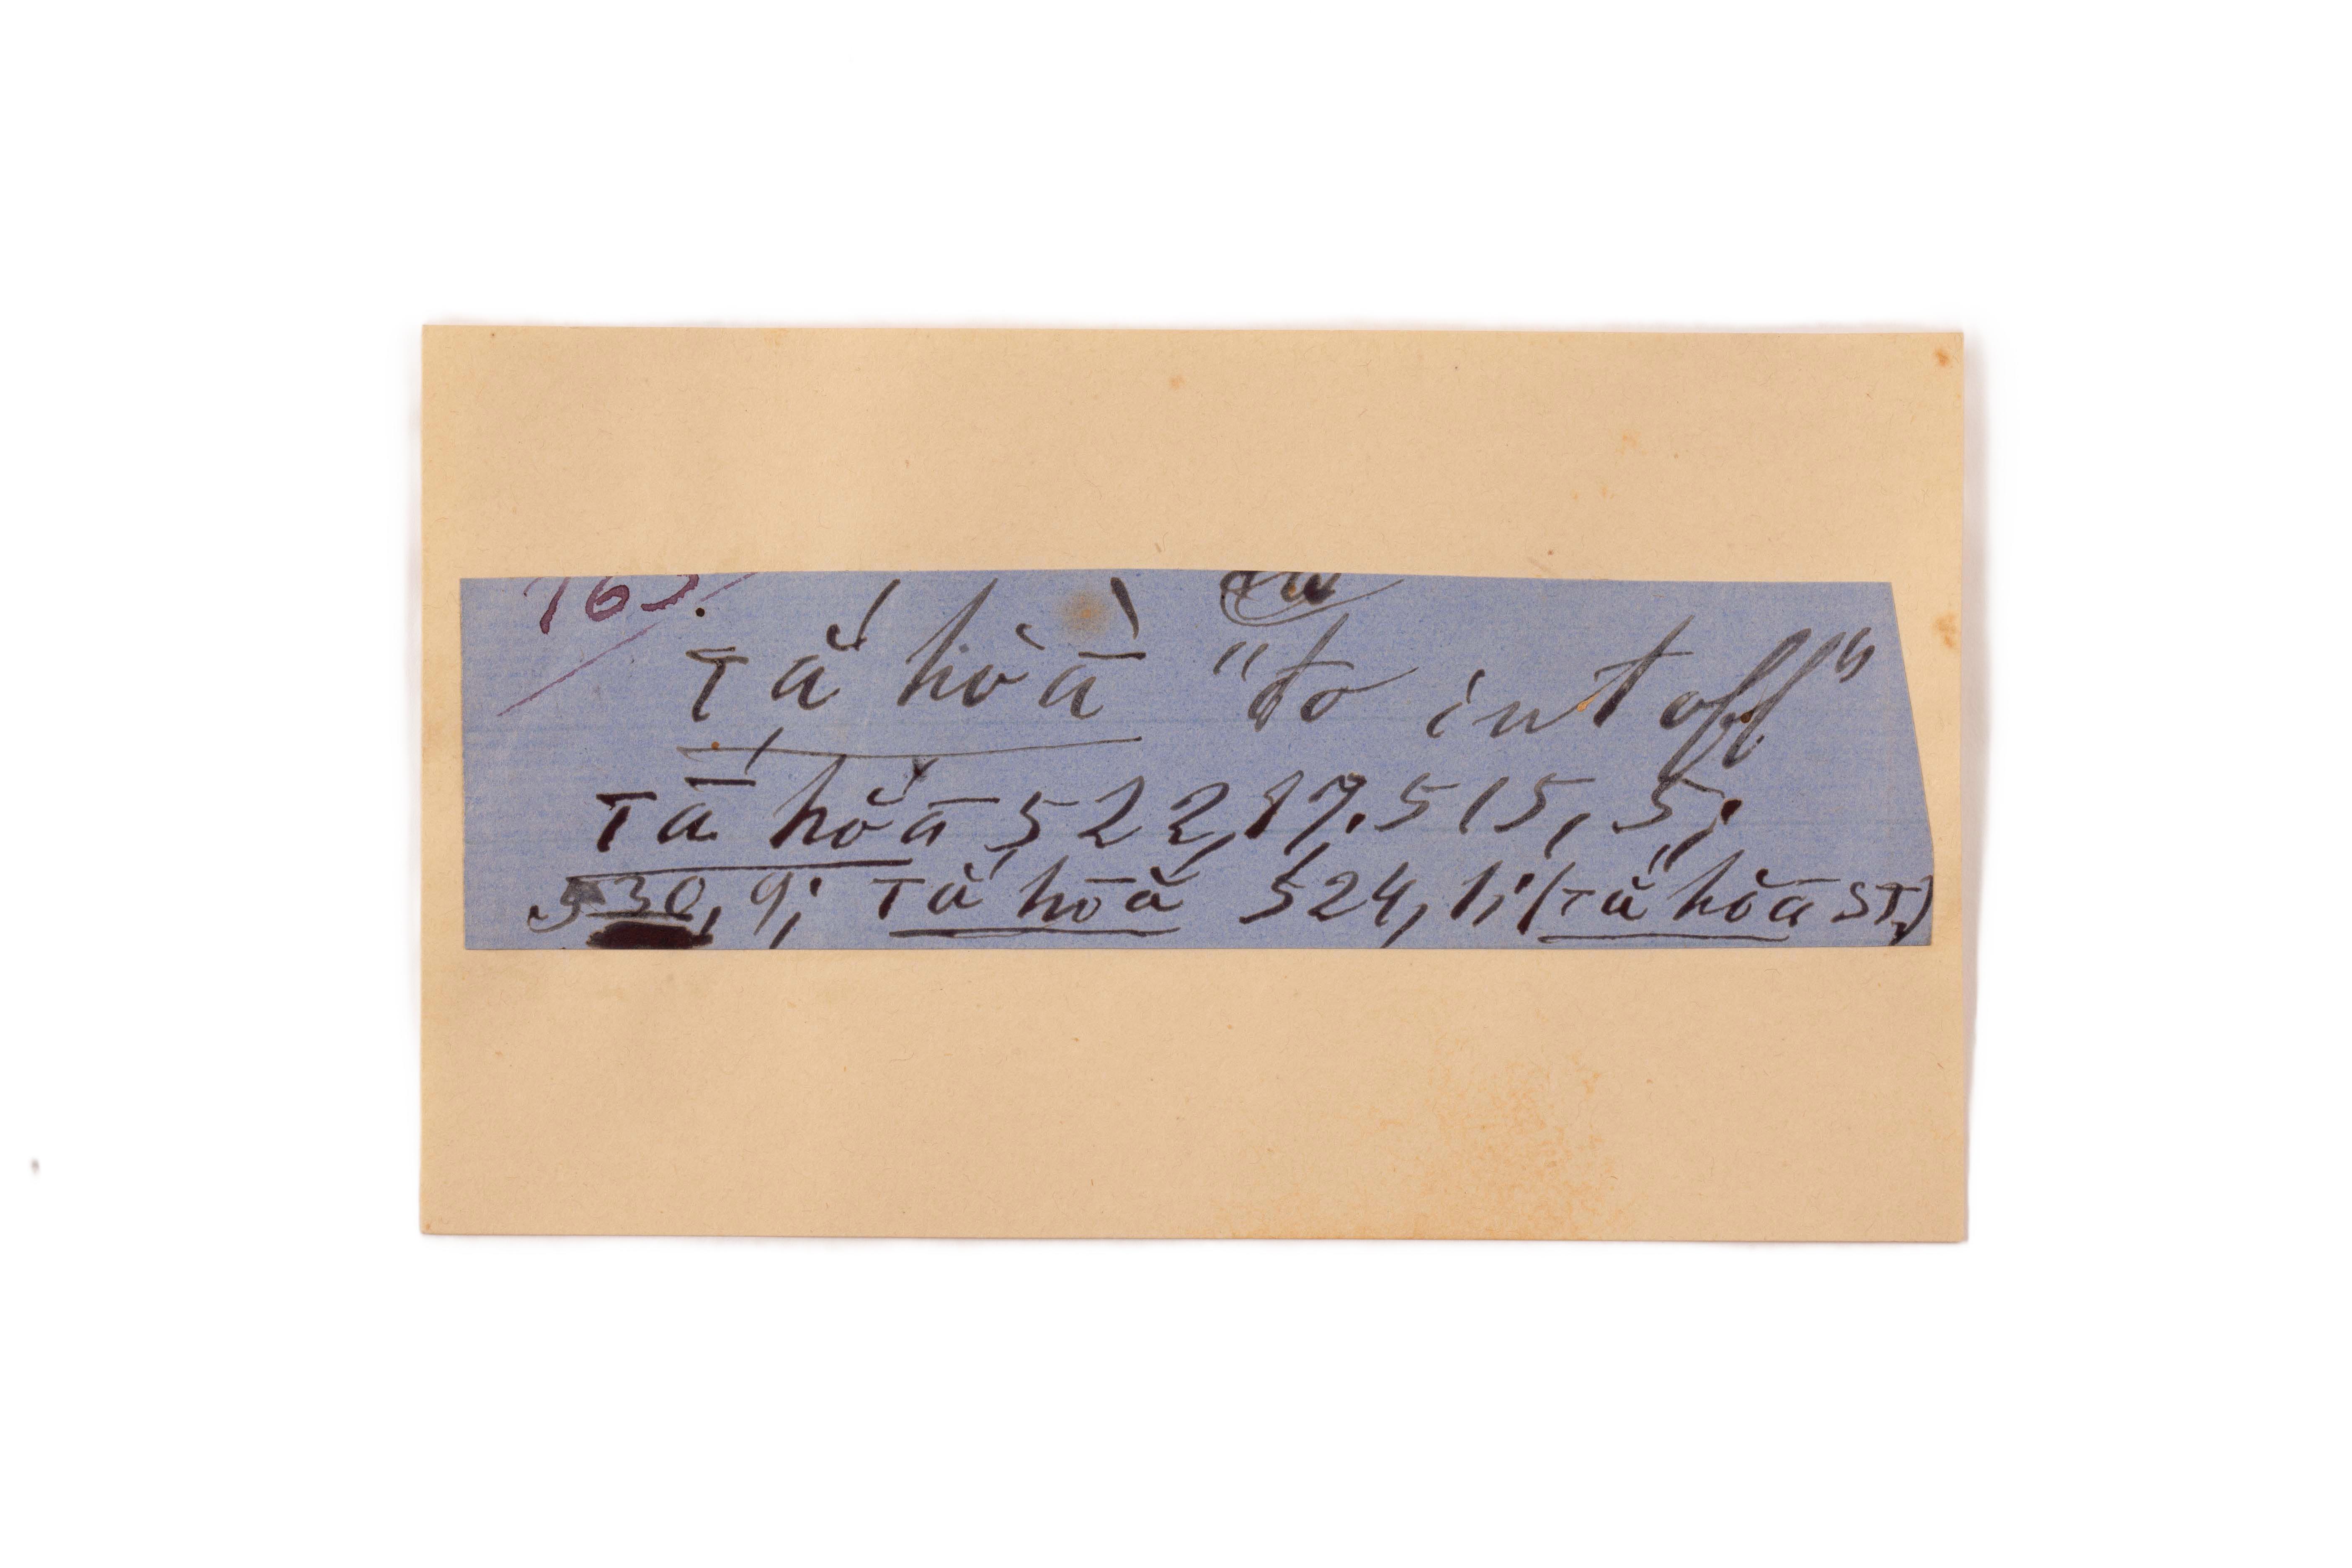 163
Tắ hòā̀ "to cut off"
Tā́ hŏā 522,17.515,5;
530, 9; Tắ hōă 524, 1; (Tắ hŏā ST.)